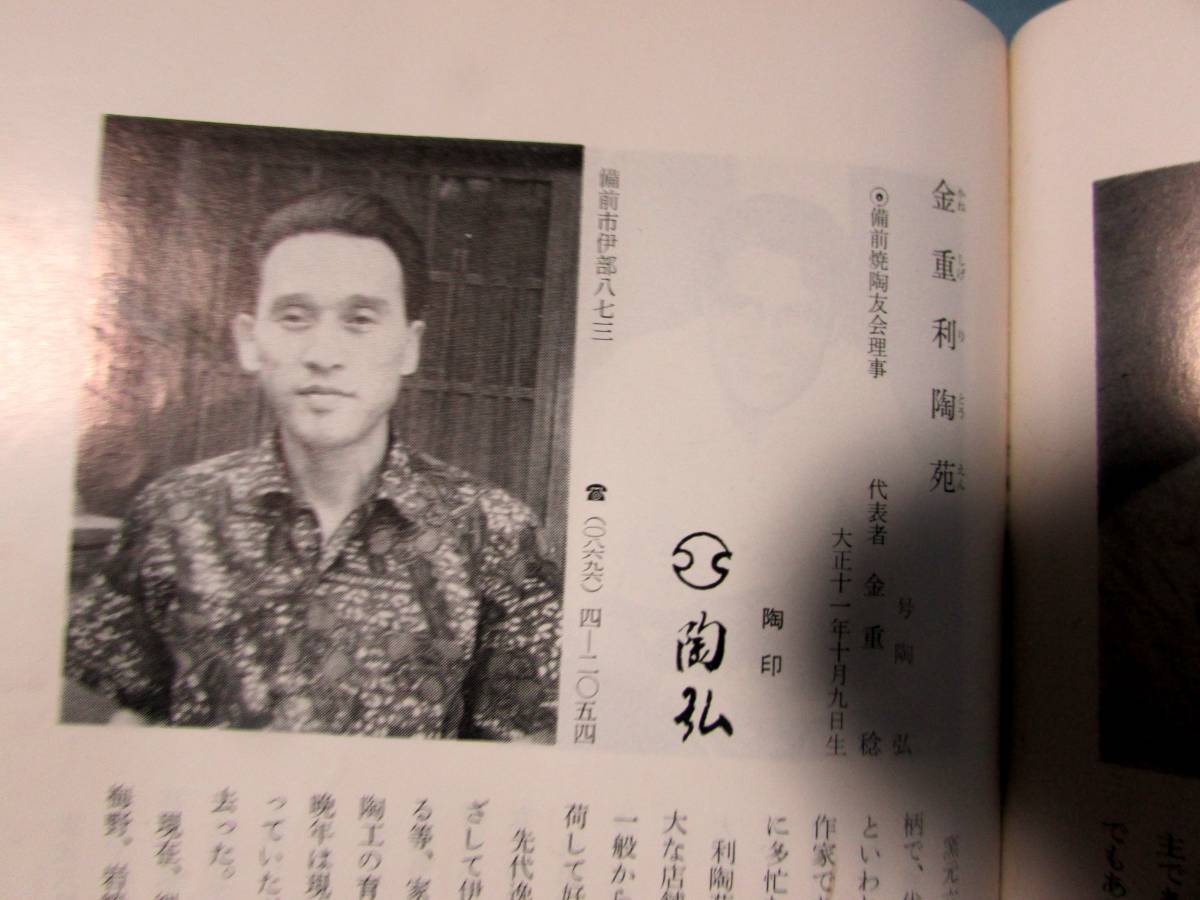 金重利陶苑
かねしげりとうえん
◉備前焼陶友会理事
代表者 金重 稔
号 陶弘
大正十一年十月九日生
陶印
陶弘
備前市伊部八七三
☎(〇八六九六)四―二〇五四
柄で、
といわ
作家で
に多忙
利陶苑
大な店舗
一般から
荷して好
先代逸
ざして伊
る等、家
陶工の育
晩年は現
っていた
去った。
現在、
梅野、岩
主で
でもあ